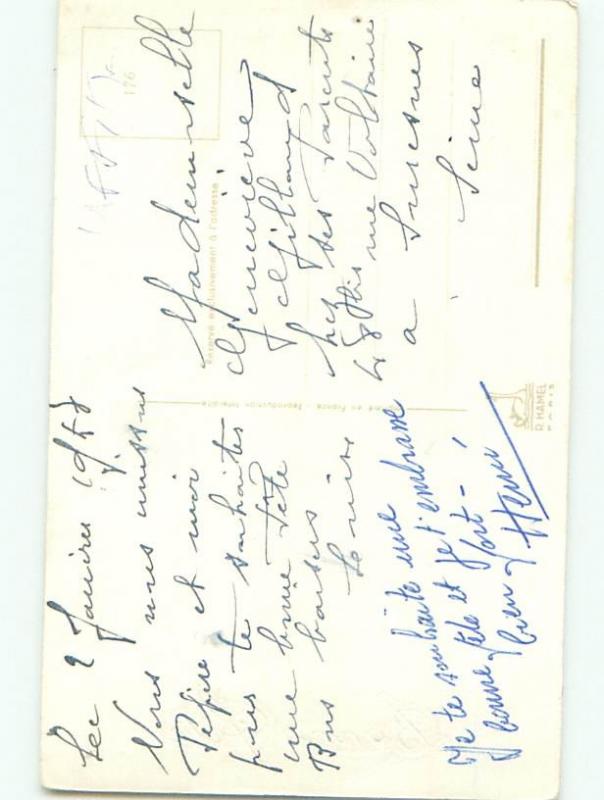 Le 2 Janvier 1958
Nous nous unissons
Pépère et moi
pour te souhaites
une bonne Fête
Bons baisers
Louise
Je te souhaite une
bonne fête et je t'embrasse
bien fort -
Henri
Mademoiselle
Geneviève
chez ses Parents
48 Bis rue Voltaire
a Suresnes
Seine
176
Réservé exclusivement à l'adresse
en France - Reproduction Interdite
R. HAMEL
PARIS